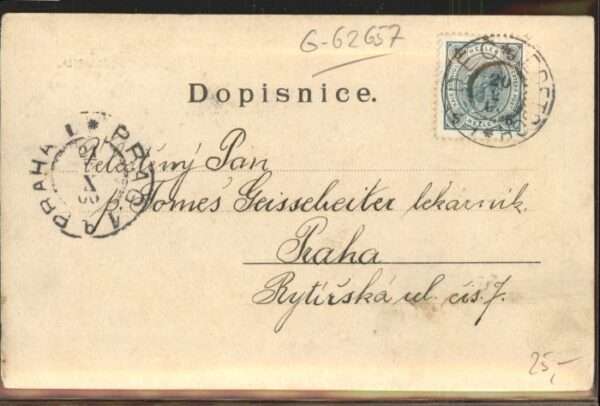 G-62657
Dopisnice.
HELLER
PRAHA 1 * PRAG 1
Velectěný Pán
p. Tomeš Geissebeiter lekárník.
Praha
Rytířská ul. čís. 7.
25,-